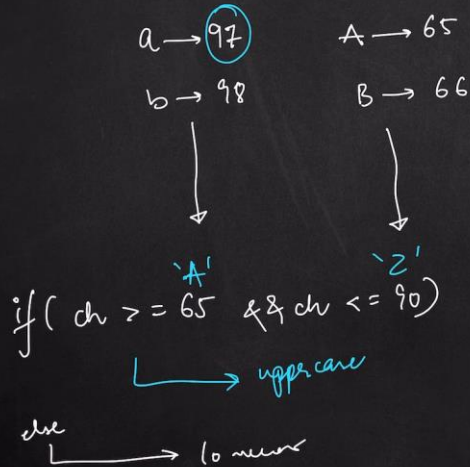 a → 97 A → 65
b → 98 B → 66
'A' 'Z'
if( ch >= 65 && ch <= 90)
→ uppercase
else
→ lowercase